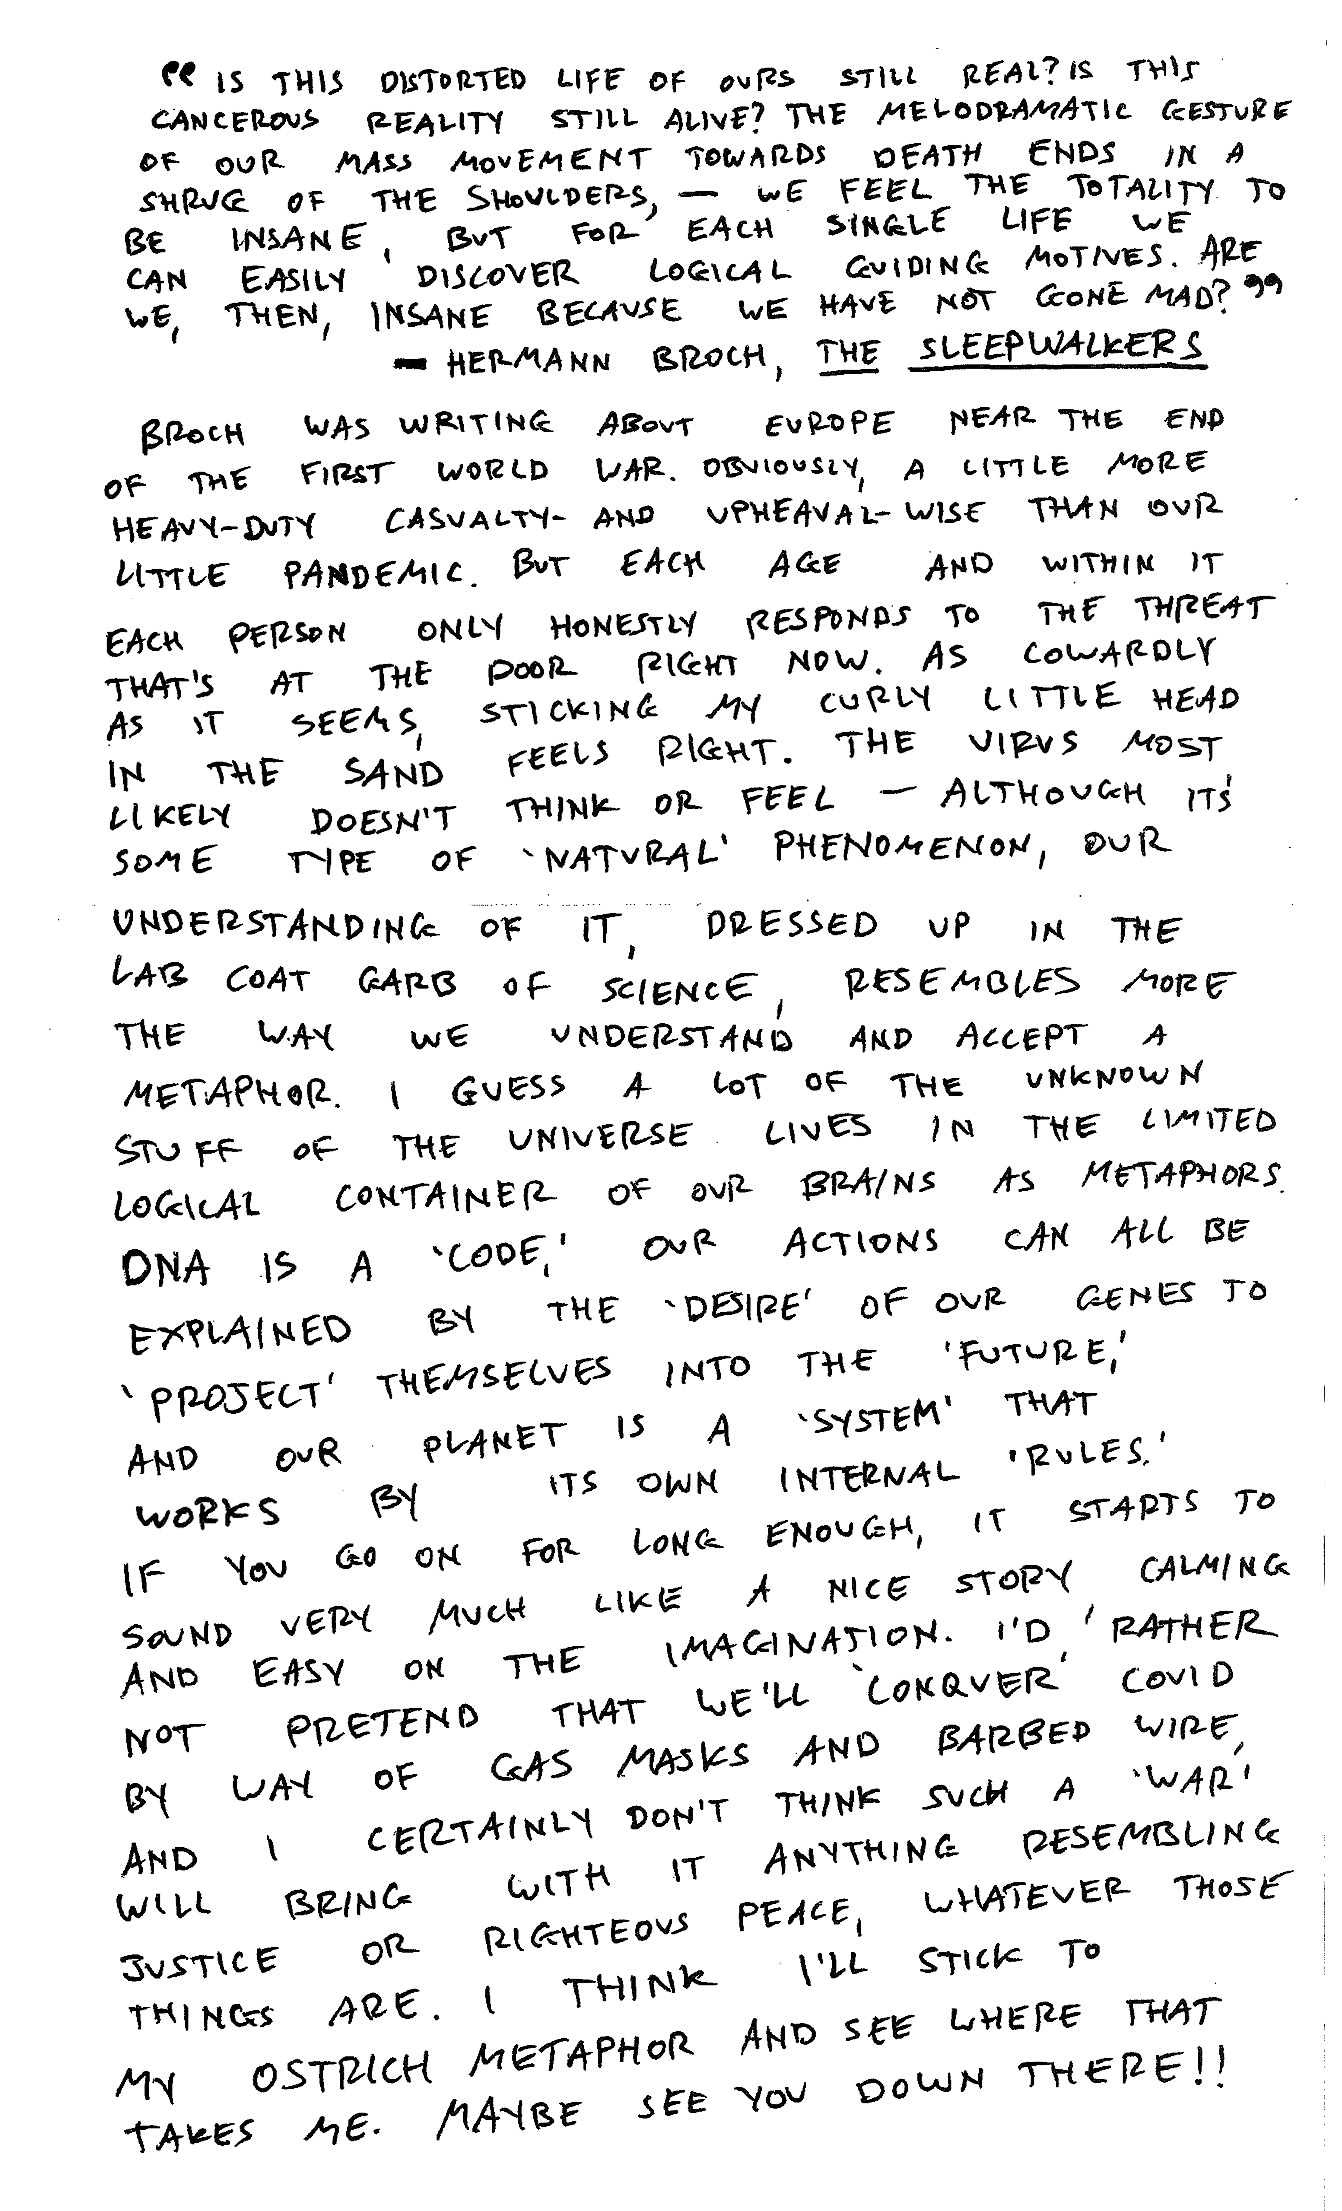 “IS THIS DISTORTED LIFE OF OURS STILL REAL? IS THIS
CANCEROUS REALITY STILL ALIVE? THE MELODRAMATIC GESTURE
OF OUR MASS MOVEMENT TOWARDS DEATH ENDS IN A
SHRUG OF THE SHOULDERS, — WE FEEL THE TOTALITY TO
BE INSANE, BUT FOR EACH SINGLE LIFE WE
CAN EASILY DISCOVER LOGICAL GUIDING MOTIVES. ARE
WE, THEN, INSANE BECAUSE WE HAVE NOT GONE MAD?”
— HERMANN BROCH, THE SLEEPWALKERS
BROCH WAS WRITING ABOUT EUROPE NEAR THE END
OF THE FIRST WORLD WAR. OBVIOUSLY, A LITTLE MORE
HEAVY-DUTY CASUALTY- AND UPHEAVAL-WISE THAN OUR
LITTLE PANDEMIC. BUT EACH AGE AND WITHIN IT
EACH PERSON ONLY HONESTLY RESPONDS TO THE THREAT
THAT'S AT THE DOOR RIGHT NOW. AS COWARDLY
AS IT SEEMS, STICKING MY CURLY LITTLE HEAD
IN THE SAND FEELS RIGHT. THE VIRUS MOST
LIKELY DOESN'T THINK OR FEEL — ALTHOUGH IT'S
SOME TYPE OF 'NATURAL' PHENOMENON, OUR
UNDERSTANDING OF IT, DRESSED UP IN THE
LAB COAT GARB OF SCIENCE, RESEMBLES MORE
THE WAY WE UNDERSTAND AND ACCEPT A
METAPHOR. I GUESS A LOT OF THE UNKNOWN
STUFF OF THE UNIVERSE LIVES IN THE LIMITED
LOGICAL CONTAINER OF OUR BRAINS AS METAPHORS.
DNA IS A 'CODE,' OUR ACTIONS CAN ALL BE
EXPLAINED BY THE 'DESIRE' OF OUR GENES TO
'PROJECT' THEMSELVES INTO THE 'FUTURE,'
AND OUR PLANET IS A 'SYSTEM' THAT
WORKS BY ITS OWN INTERNAL 'RULES.'
IF YOU GO ON FOR LONG ENOUGH, IT STARTS TO
SOUND VERY MUCH LIKE A NICE STORY, CALMING
AND EASY ON THE IMAGINATION. I'D RATHER
NOT PRETEND THAT WE'LL 'CONQUER' COVID
BY WAY OF GAS MASKS AND BARBED WIRE,
AND I CERTAINLY DON'T THINK SUCH A 'WAR'
WILL BRING WITH IT ANYTHING RESEMBLING
JUSTICE OR RIGHTEOUS PEACE, WHATEVER THOSE
THINGS ARE. I THINK I'LL STICK TO
MY OSTRICH METAPHOR AND SEE WHERE THAT
TAKES ME. MAYBE SEE YOU DOWN THERE!!